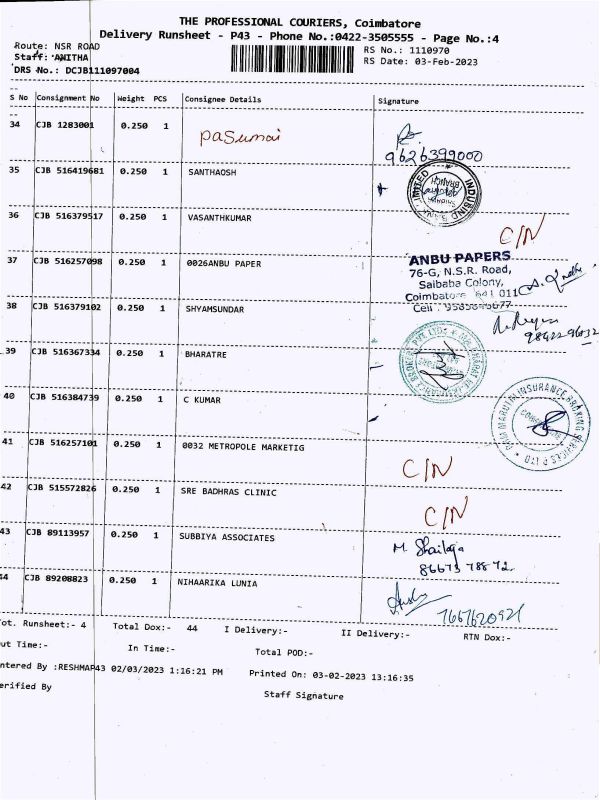 THE PROFESSIONAL COURIERS, Coimbatore
Delivery Runsheet - P43 - Phone No.:0422-3505555 - Page No.:4
Route: NSR ROAD
RS No.: 1110970
Staff: ANITHA
RS Date: 03-Feb-2023
DRS No.: DCJB111097004
S No Consignment No Weight PCS Consignee Details Signature
34 CJB 1283001 0.250 1 Pasumai
9626399000
35 CJB 516419681 0.250 1 SANTHAOSH
INDUSIND BANK LIMITED
BRANCH
36 CJB 516379517 0.250 1 VASANTHKUMAR C/N
37 CJB 516257098 0.250 1 0026ANBU PAPER
ANBU PAPERS
76-G, N.S.R. Road,
Saibaba Colony,
Coimbatore 641 011
Cell :
38 CJB 516379102 0.250 1 SHYAMSUNDAR
39 CJB 516367334 0.250 1 BHARATRE
40 CJB 516384739 0.250 1 C KUMAR
INSURANCE BROKING SERVICES P LTD
41 CJB 516257101 0.250 1 0032 METROPOLE MARKETIG C/N
42 CJB 515572826 0.250 1 SRE BADHRAS CLINIC C/N
43 CJB 89113957 0.250 1 SUBBIYA ASSOCIATES M. Shailaja
86675 78872
44 CJB 89208823 0.250 1 NIHAARIKA LUNIA
7667620921
ot. Runsheet:- 4 Total Dox:- 44 I Delivery:- II Delivery:- RTN Dox:-
ut Time:- In Time:- Total POD:-
ntered By :RESHMAP43 02/03/2023 1:16:21 PM Printed On: 03-02-2023 13:16:35
erified By Staff Signature